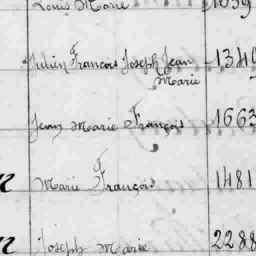 Louis Marie 1039
Julien François Joseph Jean 1340
Marie
Jean Marie François 1663
Marie François 1481
Joseph Marie 2288